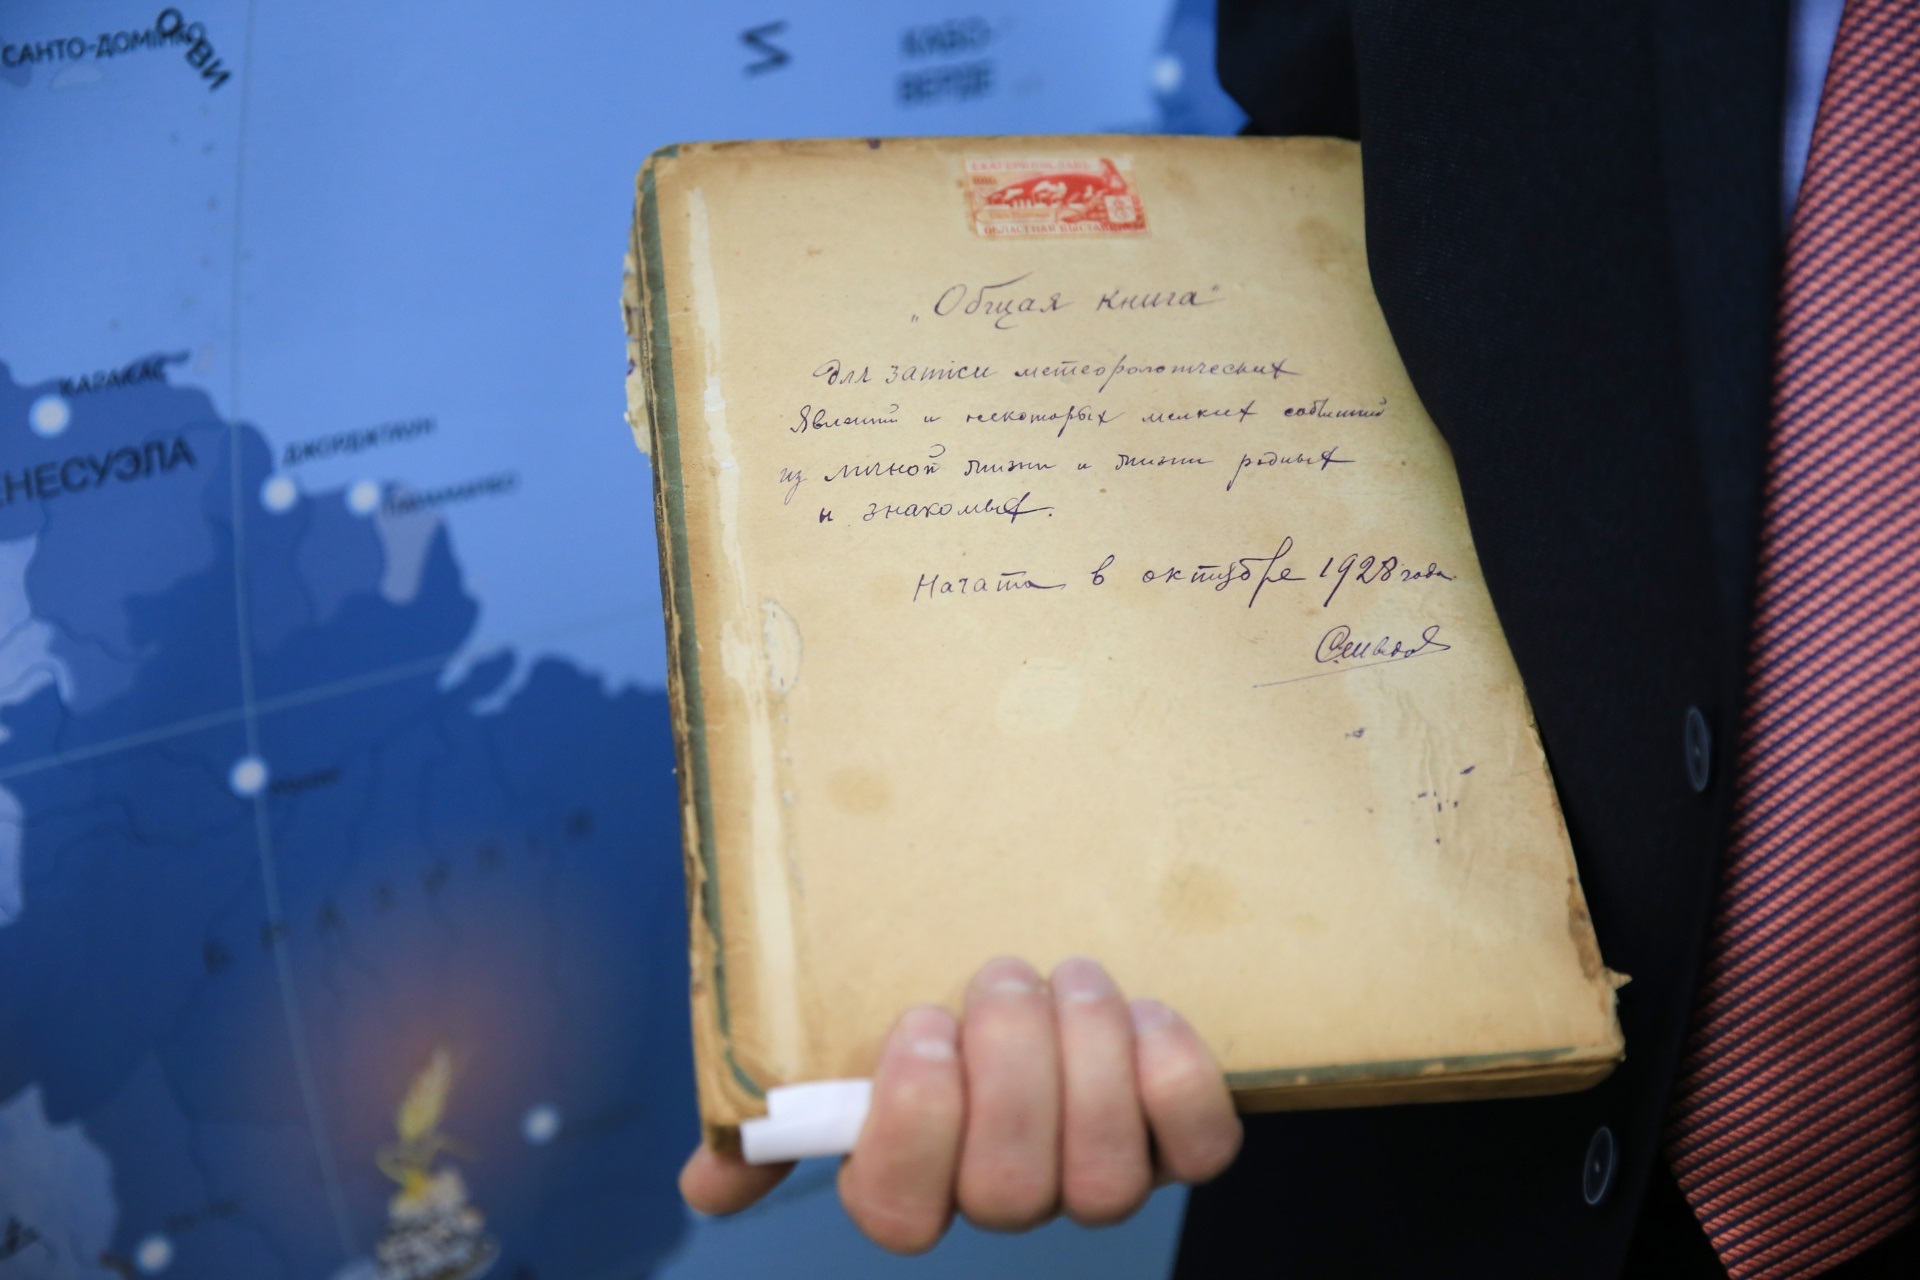 САНТО-ДОМИНГО
КАБО-
ВЕРДЕ
КАРАКАС
ДЖОРДЖТАУН
ПАРАМАРИБО
НЕСУЭЛА
БРАЗИЛІЯ
ЕКАТЕРИНОСЛАВЪ
1910
ОБЛАСТНАЯ ВЫСТАВКА
„Общая книга"
Для записи метеорологических
явлений и некоторых мелких событий
из личной жизни и жизни родных
и знакомых.
Начата в октубре 1928 года.